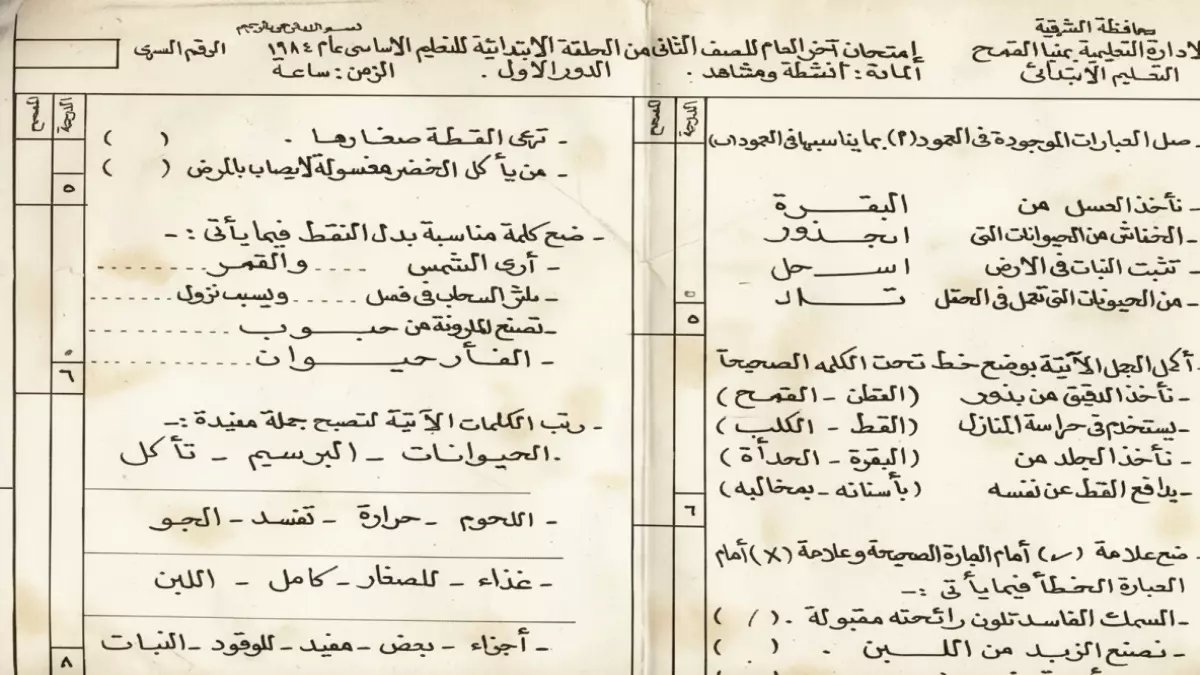 بسم الله الرحمن الرحيم
محافظة الشرقية
لادارة التعليمية بمنيا القمح
التعليم الابتدائى
إمتحان آخر العام للصف الثانى من الحلقة الابتدائية للتعليم الاساسى عام ١٩٨٤
الرقم السرى
المادة: أنشطة ومشاهد .
الدور الاول .
الزمن: ساعة
الدرجة
المصحح
- صل العبارات الموجودة فى العمود (أ) بما يناسبها فى العمود (ب)
- نأخذ العسل من البقرة
- الخفاش من الحيوانات التى الجذور
- تثبت النبات فى الارض
- من الحيونات التى تعمل فى الحقل
٥
٥
. أكمل الجمل الآتية بوضع خط تحت الكلمه الصحيحة
- نأخذ الدقيق من بذور (القطن - القمح)
- يستخدم فى حراسة المنازل (القط - الكلب)
- نأخذ الجلد من (البقرة - الحدأة)
- يدافع القط عن نفسه (بأسنانه - بمخالبه)
٦
. ضع علامة (✓) أمام العبارة الصحيحة وعلامة (X) أمام
العبارة الخطأ فيما يأتى :-
- السمك الفاسد تكون رائحته مقبولة . ( / )
- نصنع الزبد من اللبن . ( )
الدرجة
المصحح
- ترعى القطة صغارها . ( )
- من يأكل الخضر مغسولة لا يصاب بالمرض ( )
٥
- ضع كلمة مناسبة بدل النقط فيما يأتى :-
- أرى الشمس ..... والقمر ........
- السحاب فى فصل ...... ويسبب نزول ........
- تصنع المكرونة من حبوب .........
- الفأر حيوان .........
٥
٦
- رتب الكلمات الآتية لتصبح جملة مفيدة :-
. الحيوانات - البرسيم - تأكل
- اللحوم - حرارة - تفسد - الجو
- غذاء - للصغار - كامل - اللبن
- أجزاء - بعض - مفيد - للوقود - النبات
٨